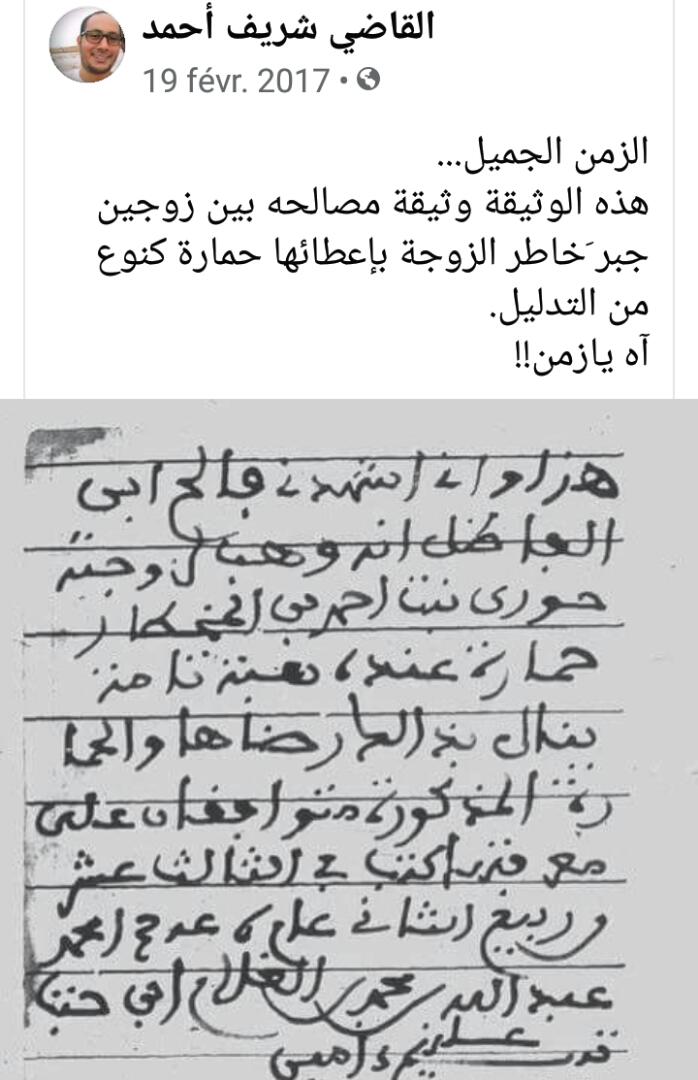 القاضي شريف أحمد
19 févr. 2017 •
الزمن الجميل...
هذه الوثيقة وثيقة مصالحه بين زوجين
جبرَ خاطر الزوجة بإعطائها حمارة كنوع
من التدليل.
آه يازمن!!
هذا واني اشهدني فالح ابن
الفاضل انه وهب لزوجته
حورى بنت احمد بن المختار
حمارة عنده هبة تامة
ينال بذالك رضاها والحما
رة المذكورة متوافقان على
معرفتها كتب في الثالث عشر
ربيع الثاني عام
عبد الله محمد الغلام